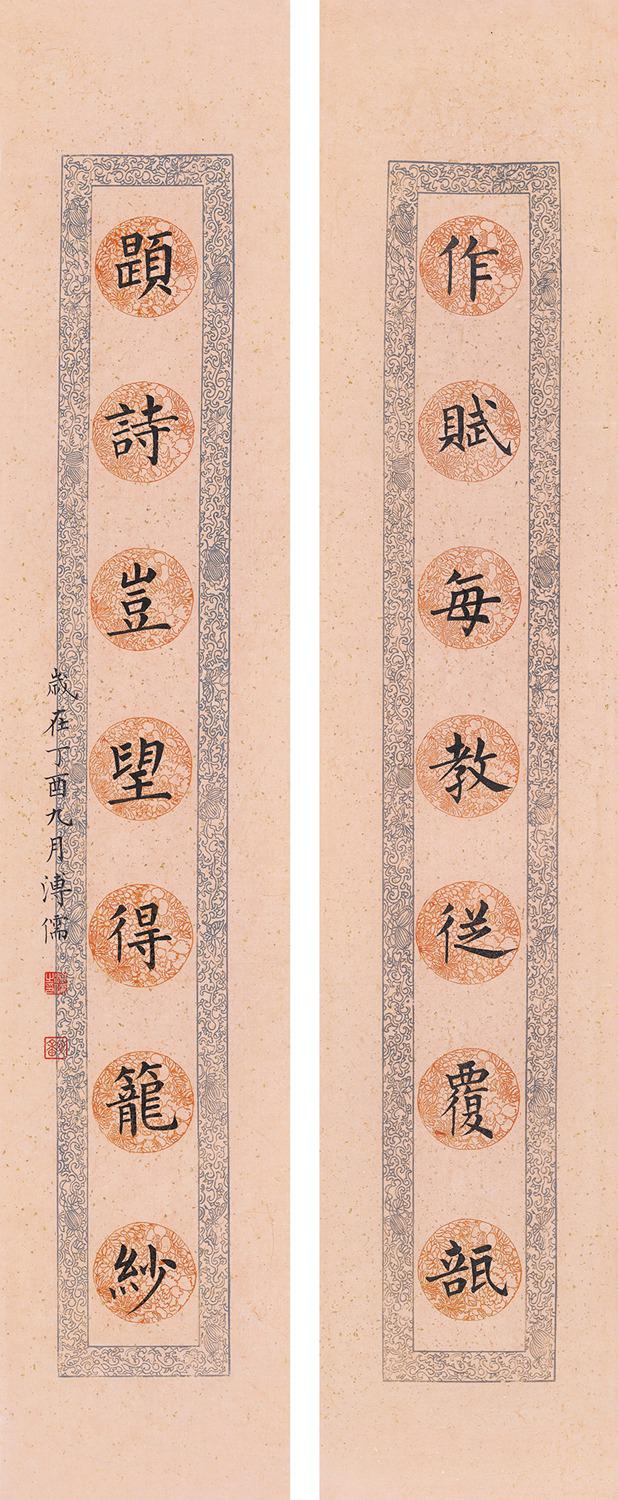 作賦每教從覆瓿
題詩豈望得籠紗
歲在丁酉九月溥儒